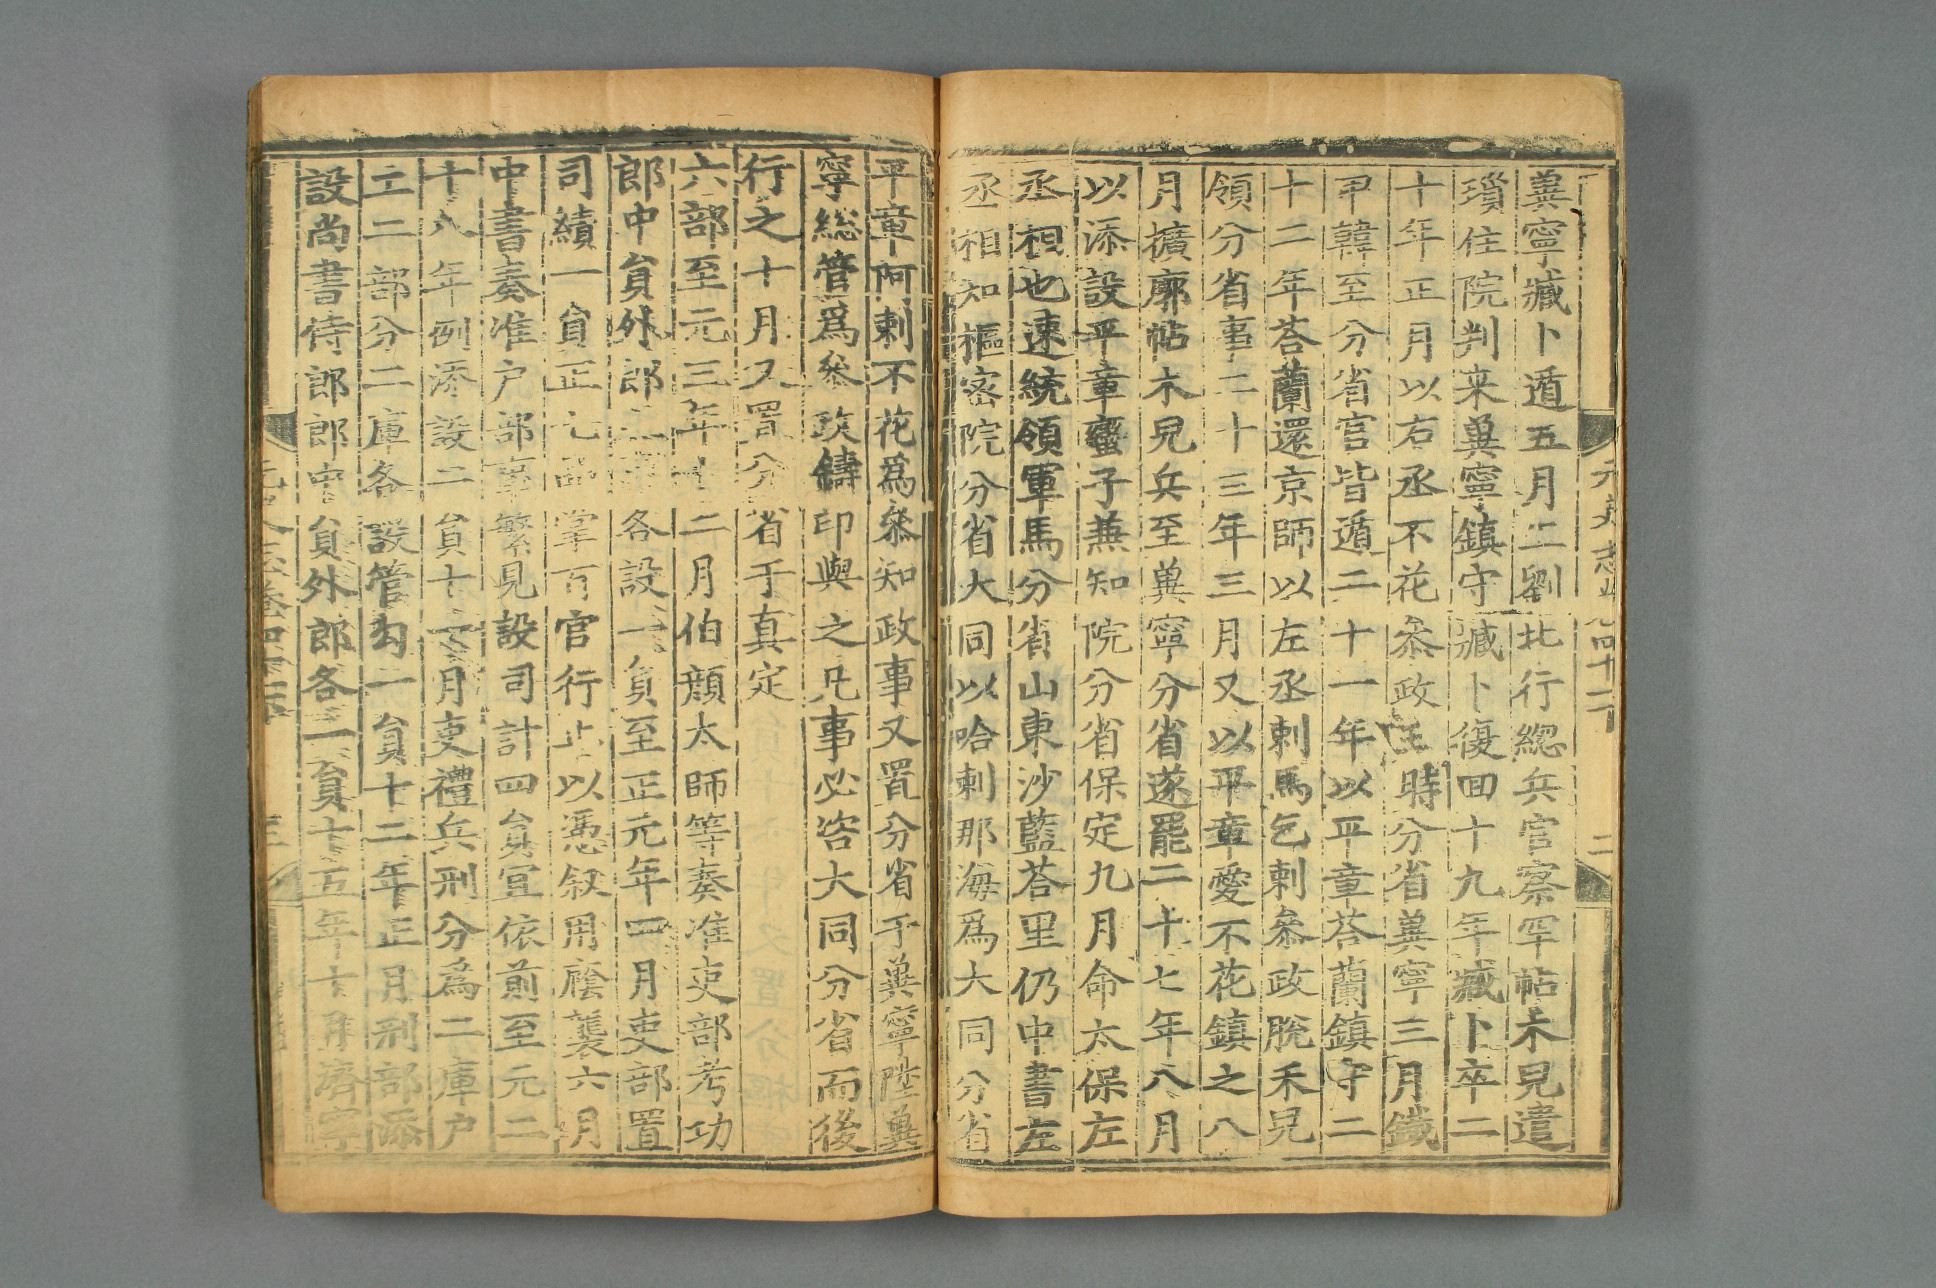 兾寧臧卜遁五月二劉北行總兵官察罕帖木兒遣
瑣住院判来兾寧鎮守臧卜復回十九年臧卜卒二
十年正月以右丞不花叅政王時分省兾寧三月鐵
甲韓至分省官皆遁二十一年以平章荅蘭鎮守二
十二年荅蘭還京師以左丞剌馬乞剌叅政脫禾兒
領分省事二十三年三月又以平章愛不花鎮之八
月擴廓帖木兒兵至兾寧分省遂罷二十七年八月
以添設平章蠻子兼知院分省保定九月命太保左
丞相也速統領軍馬分省山東沙藍荅里仍中書左
丞相知樞密院分省大同以哈剌那海爲大同分省
平章阿剌不花爲叅知政事又置分省于兾寧陞兾
寧総管爲叅政鑄印與之凡事必咨大同分省而後
行之十月又置分省于真定
六部至元三年十二月伯顔太師等奏准吏部考功
郎中負外郎二部各設一負至正元年四月吏部置
司績一負正七品掌百官行止以憑叙用廕襲六月
中書奏准户部事繁見設司計四負宜依前至元二
十八年例添設二負十二月吏禮兵刑分爲二庫户
工二部分二庫各設管勾一負十二年正月刑部添
設尚書侍郎郎中負外郎各一負十五年十月濟寧